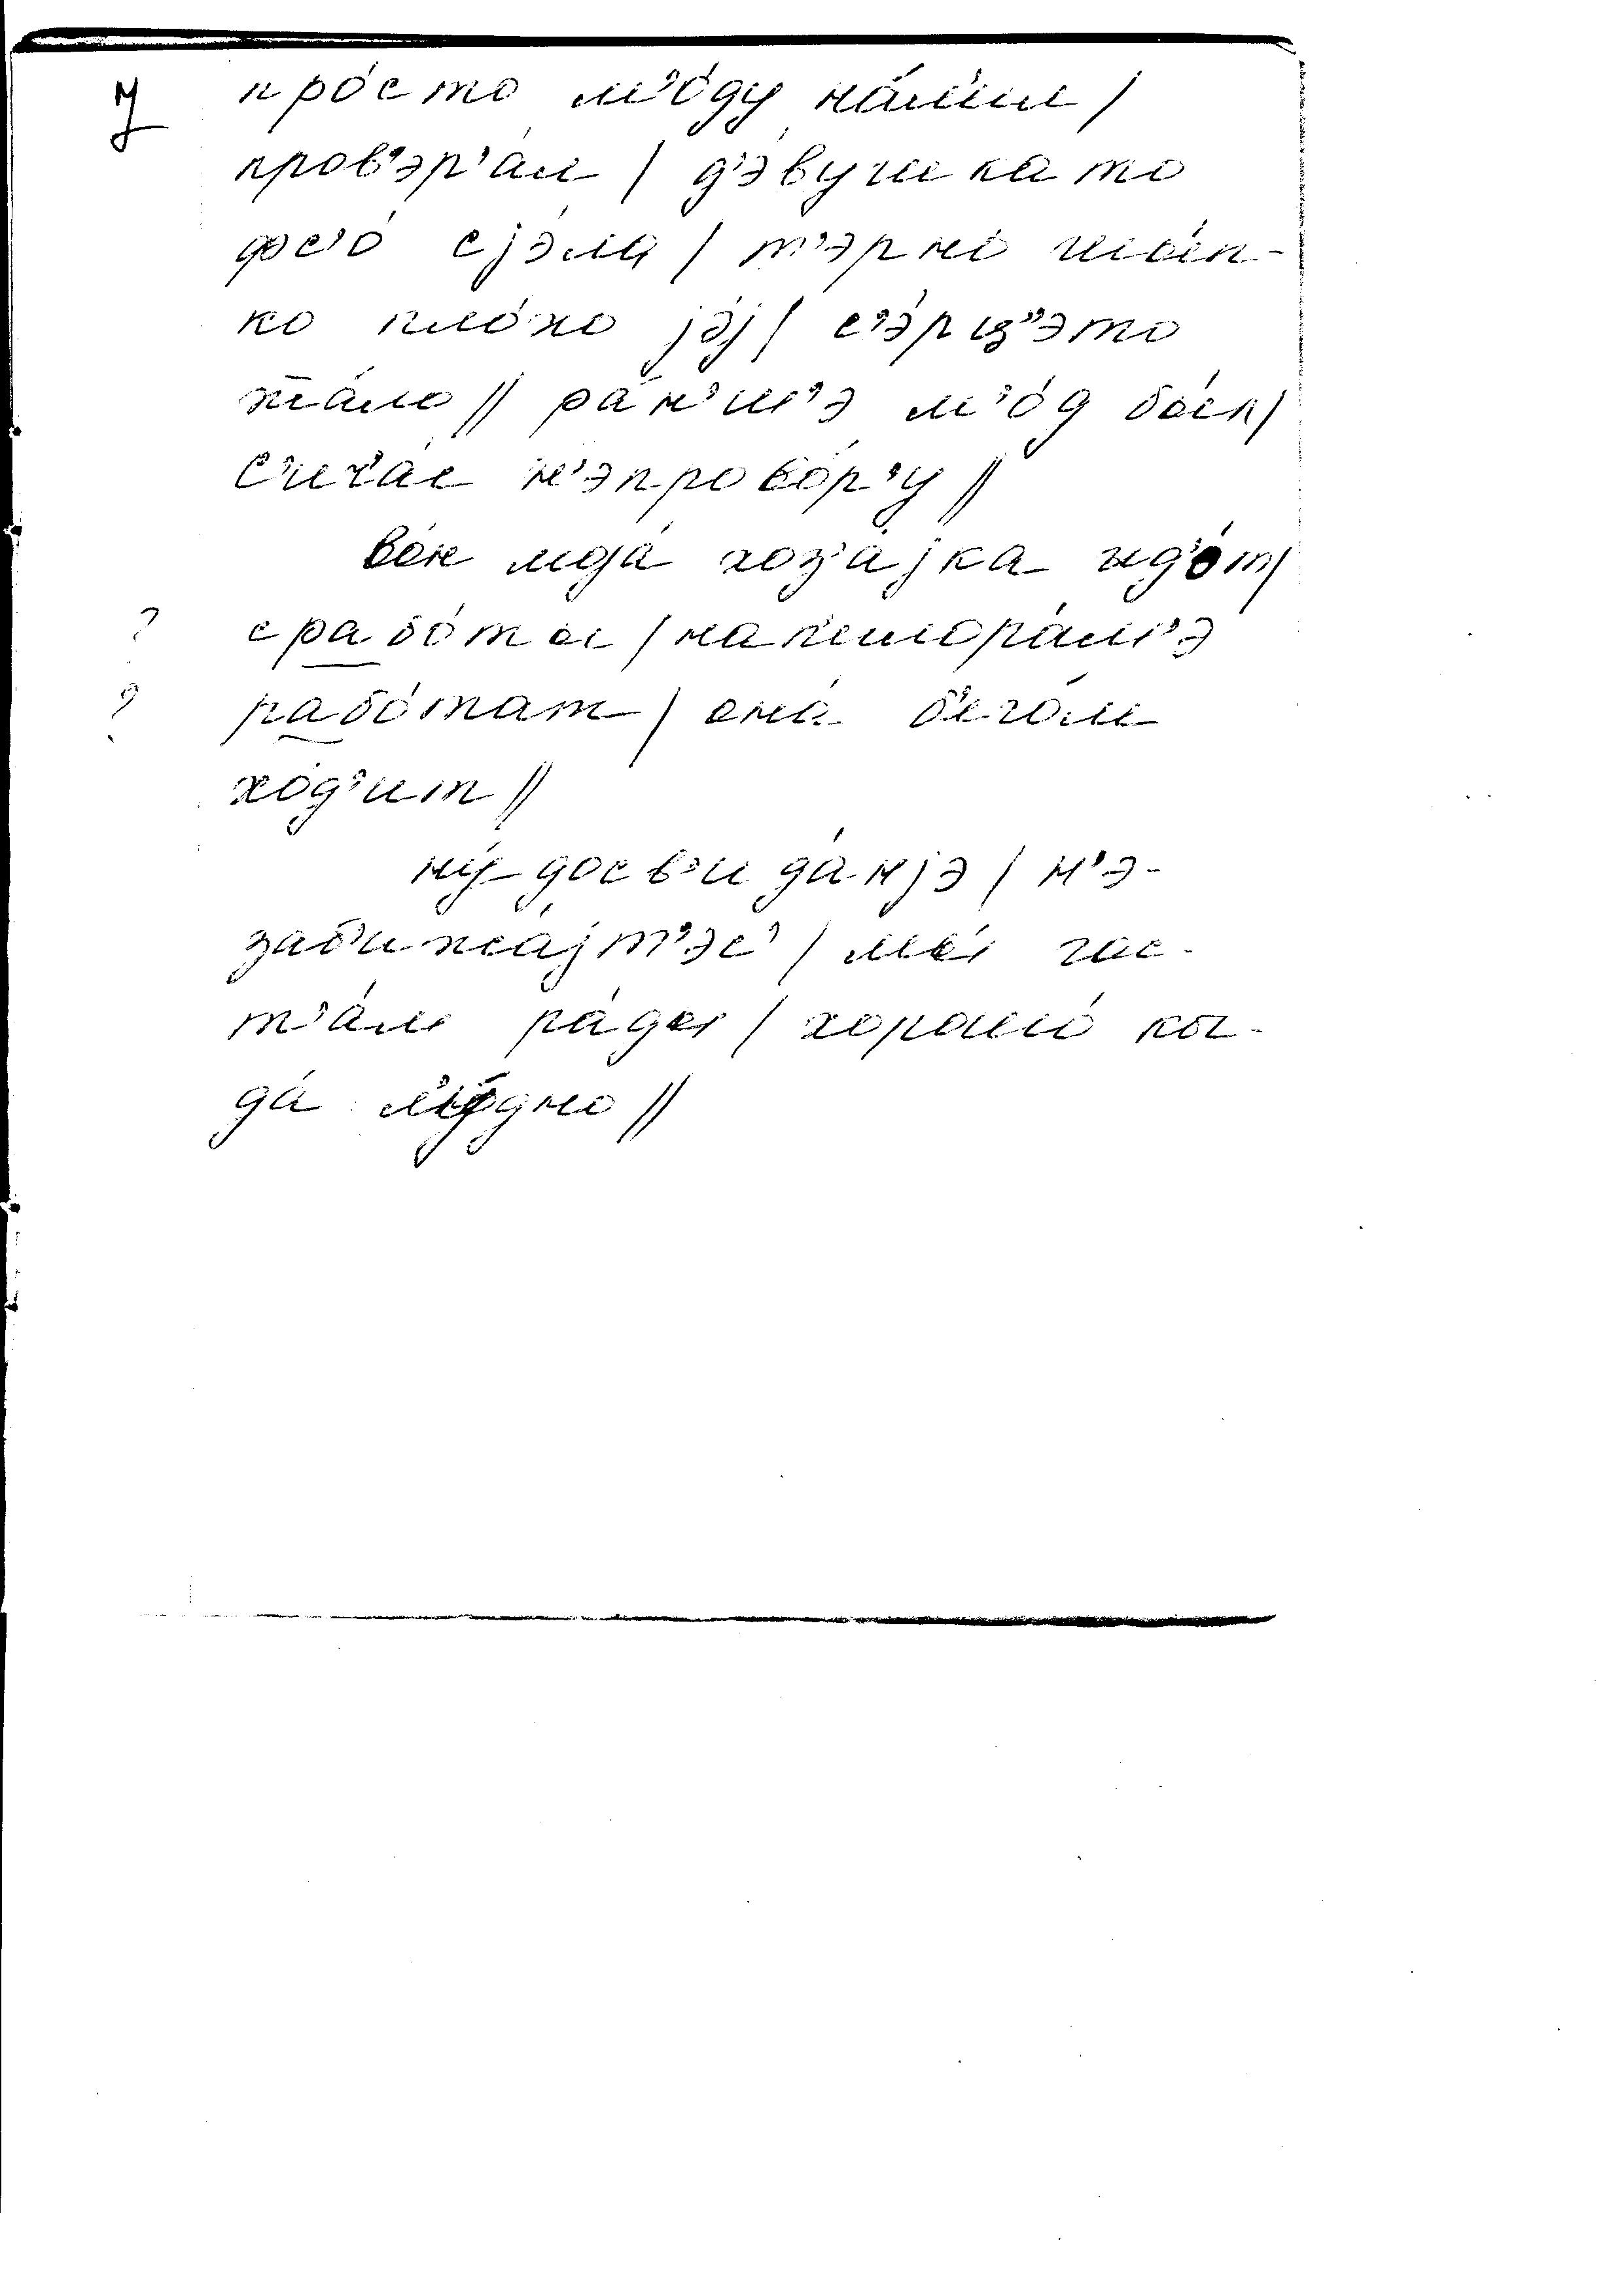 7 про́сто м'о́ду на́м'ин /
пров'эр'а́л / д'э́вушка то
фс'о́ сjэ́ла / т'эрно́ шы́п-
ко пло́хо jэ́j / с'э́рц"э то
жа́мо // ра́н'ш'э м'о́д бы́л /
сича́с н'эпрово́р'у //
во́н мда́ хоз'а́jка ид'о́т /
? срабо́ты / на к'илора́м'э
? рабо́тат / она́ б'иго́м
хо́д'ит //
ну́ досв'ида́нjэ / н'э-
заб'ижа́jт'эс' / мы́ гос-
т'а́м ра́ды / хорошо́ ко-
да́ л'у́дно //